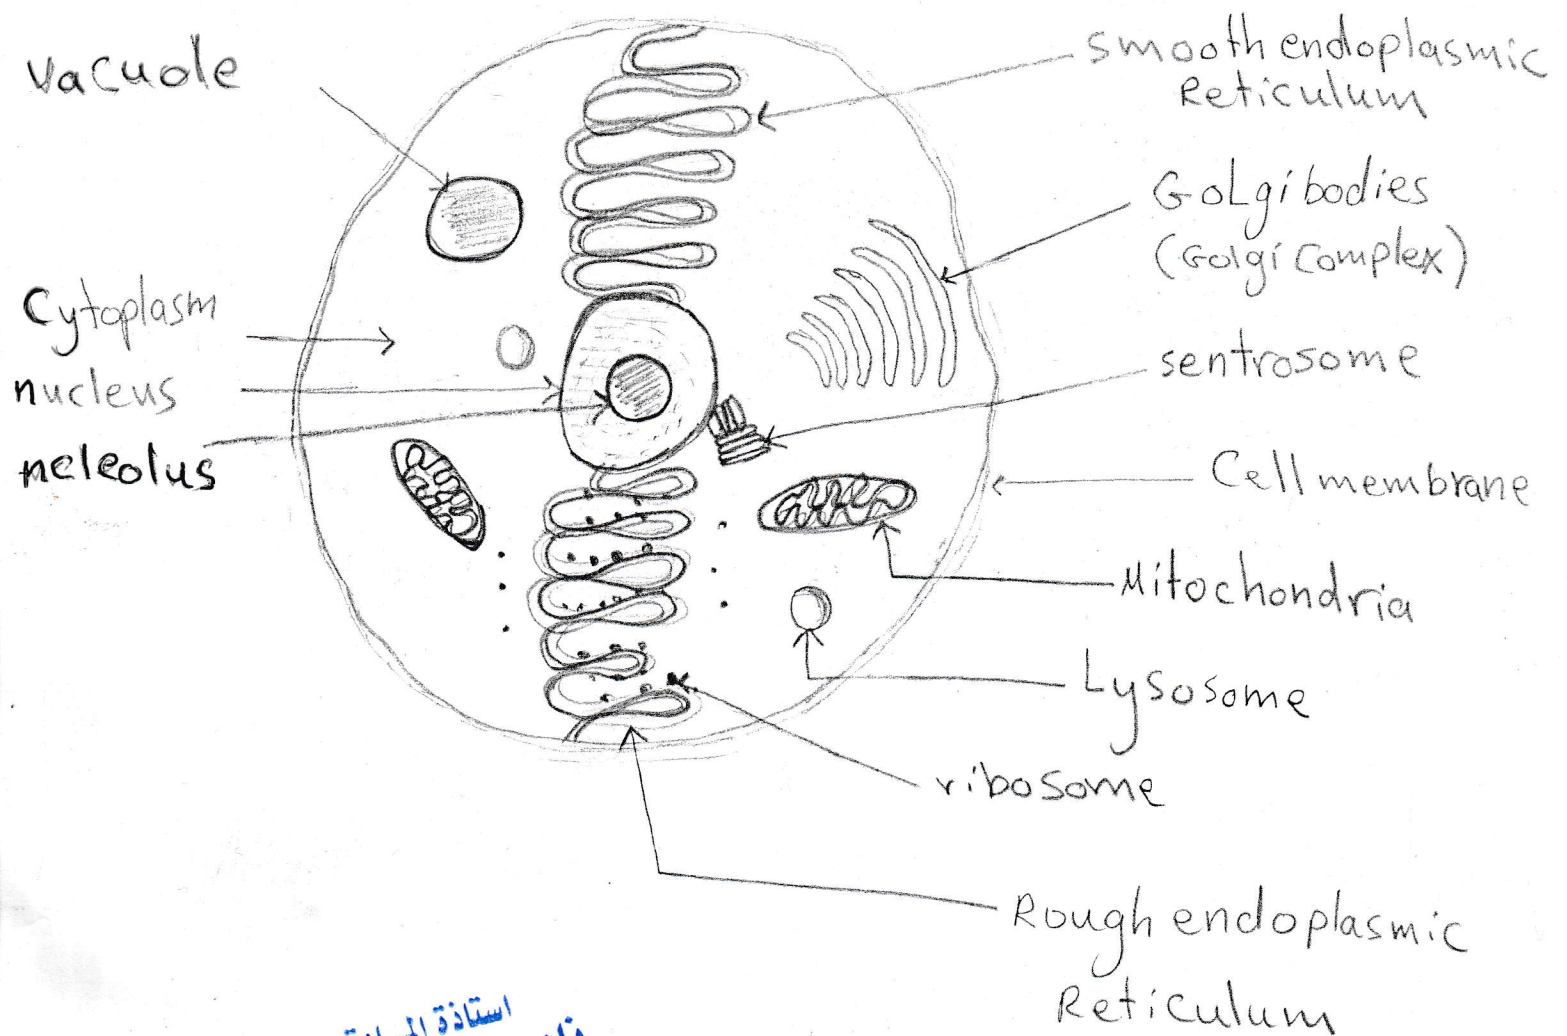 Vacuole
Cytoplasm
nucleus
neleolus
smooth endoplasmic
Reticulum
Golgi bodies
(Golgi complex)
sentrosome
Cell membrane
Mitochondria
Lysosome
ribosome
Rough endoplasmic
Reticulum
استاذة